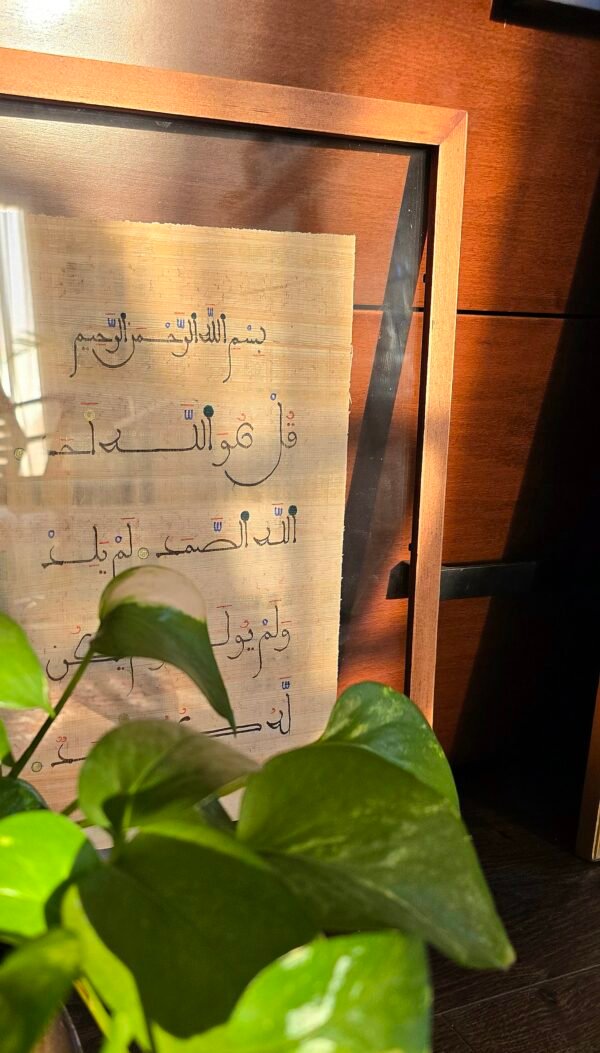 بِسْمِ اللَّهِ الرَّحْمَنِ الرَّحِيمِ
قُلْ هُوَ اللَّهُ أَحَدٌ
اللَّهُ الصَّمَدُ لَمْ يَلِدْ
وَلَمْ يُولَدْ وَلَمْ يَكُن
لَّهُ